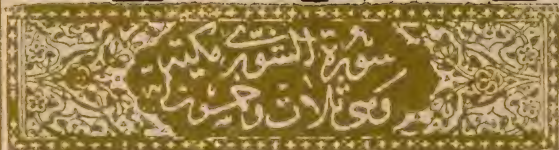 سورة الشورى مكية
وهى ثلاث وخمسون